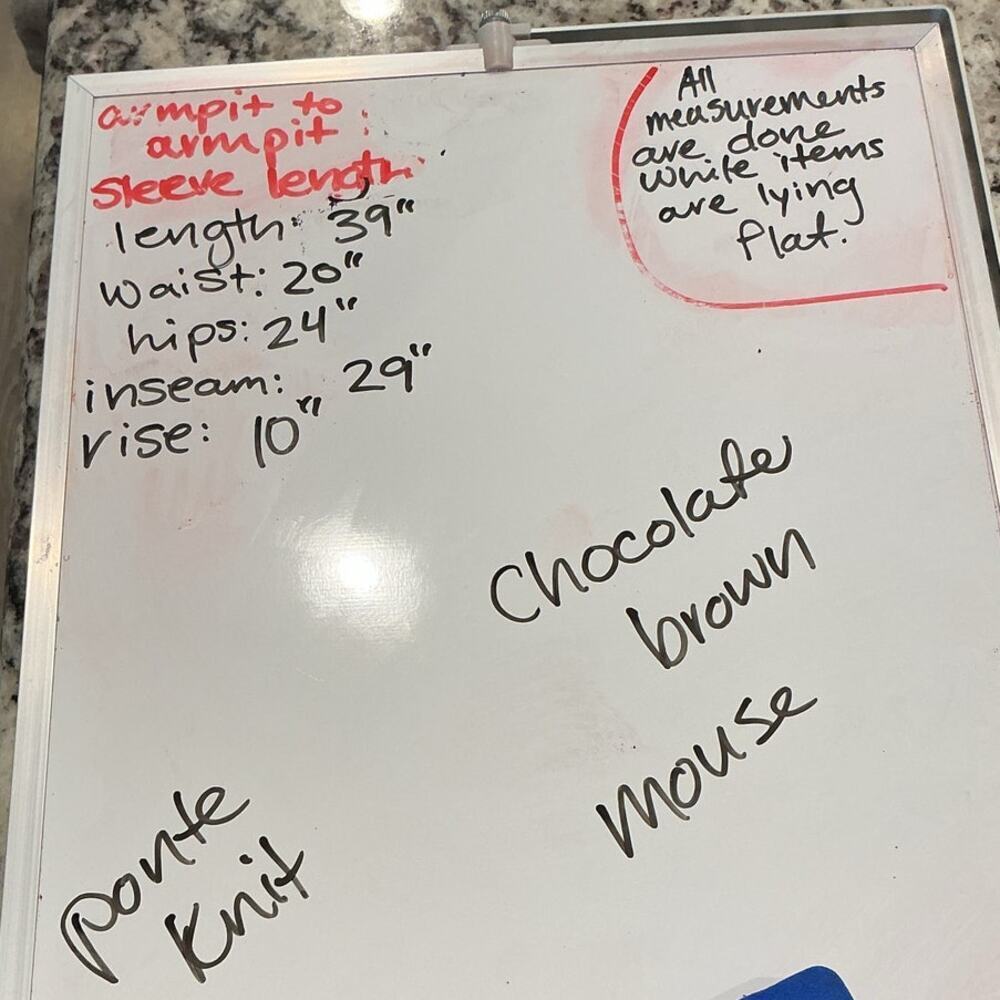 armpit to
armpit
sleeve length
length: 39"
waist: 20"
hips: 24"
inseam: 29"
rise: 10"
All
measurements
are done
while items
are lying
flat.
Chocolate
brown
mouse
ponte
knit